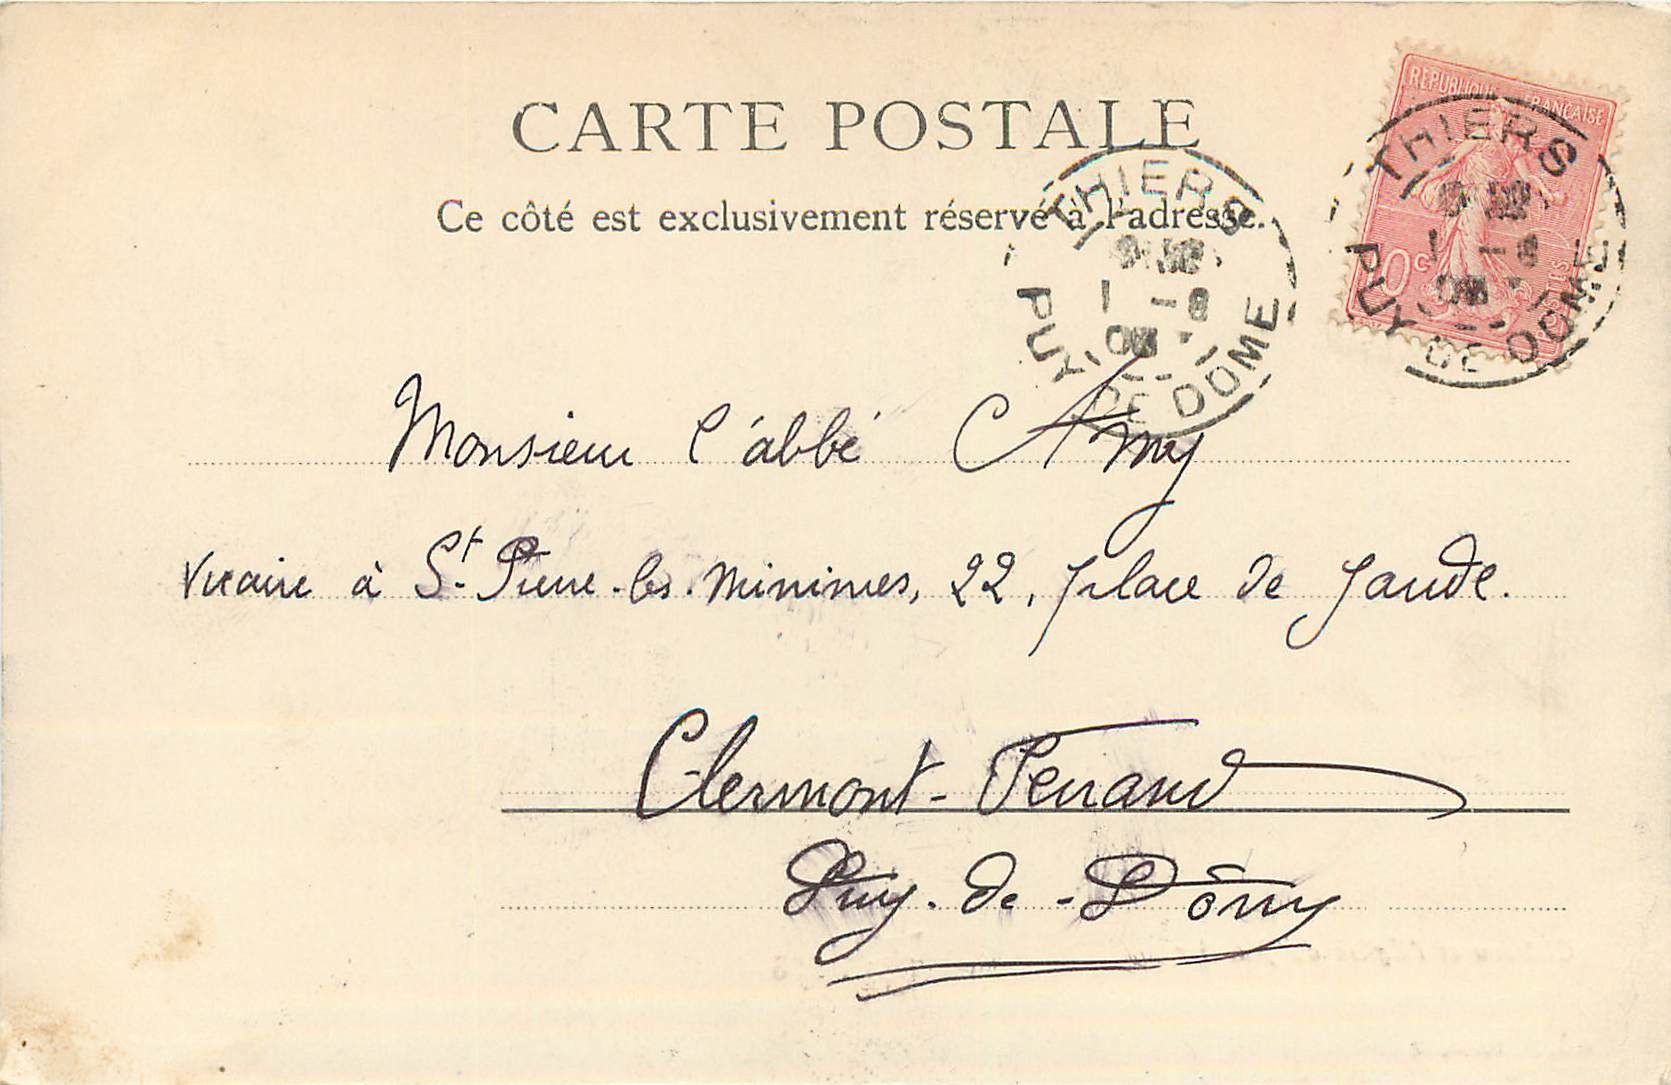 CARTE POSTALE
Ce côté est exclusivement réservé à l'adresse.
RÉPUBLIQUE FRANÇAISE
10 c POSTES
THIERS
1 -8
PUY DE DOME
THIERS
1 -8
PUY DE DOME
Monsieur l'abbé Amy
vicaire à St. Pierre-les-Minimes, 22, place de Jaude.
Clermont-Ferrand
Puy-de-Dôme